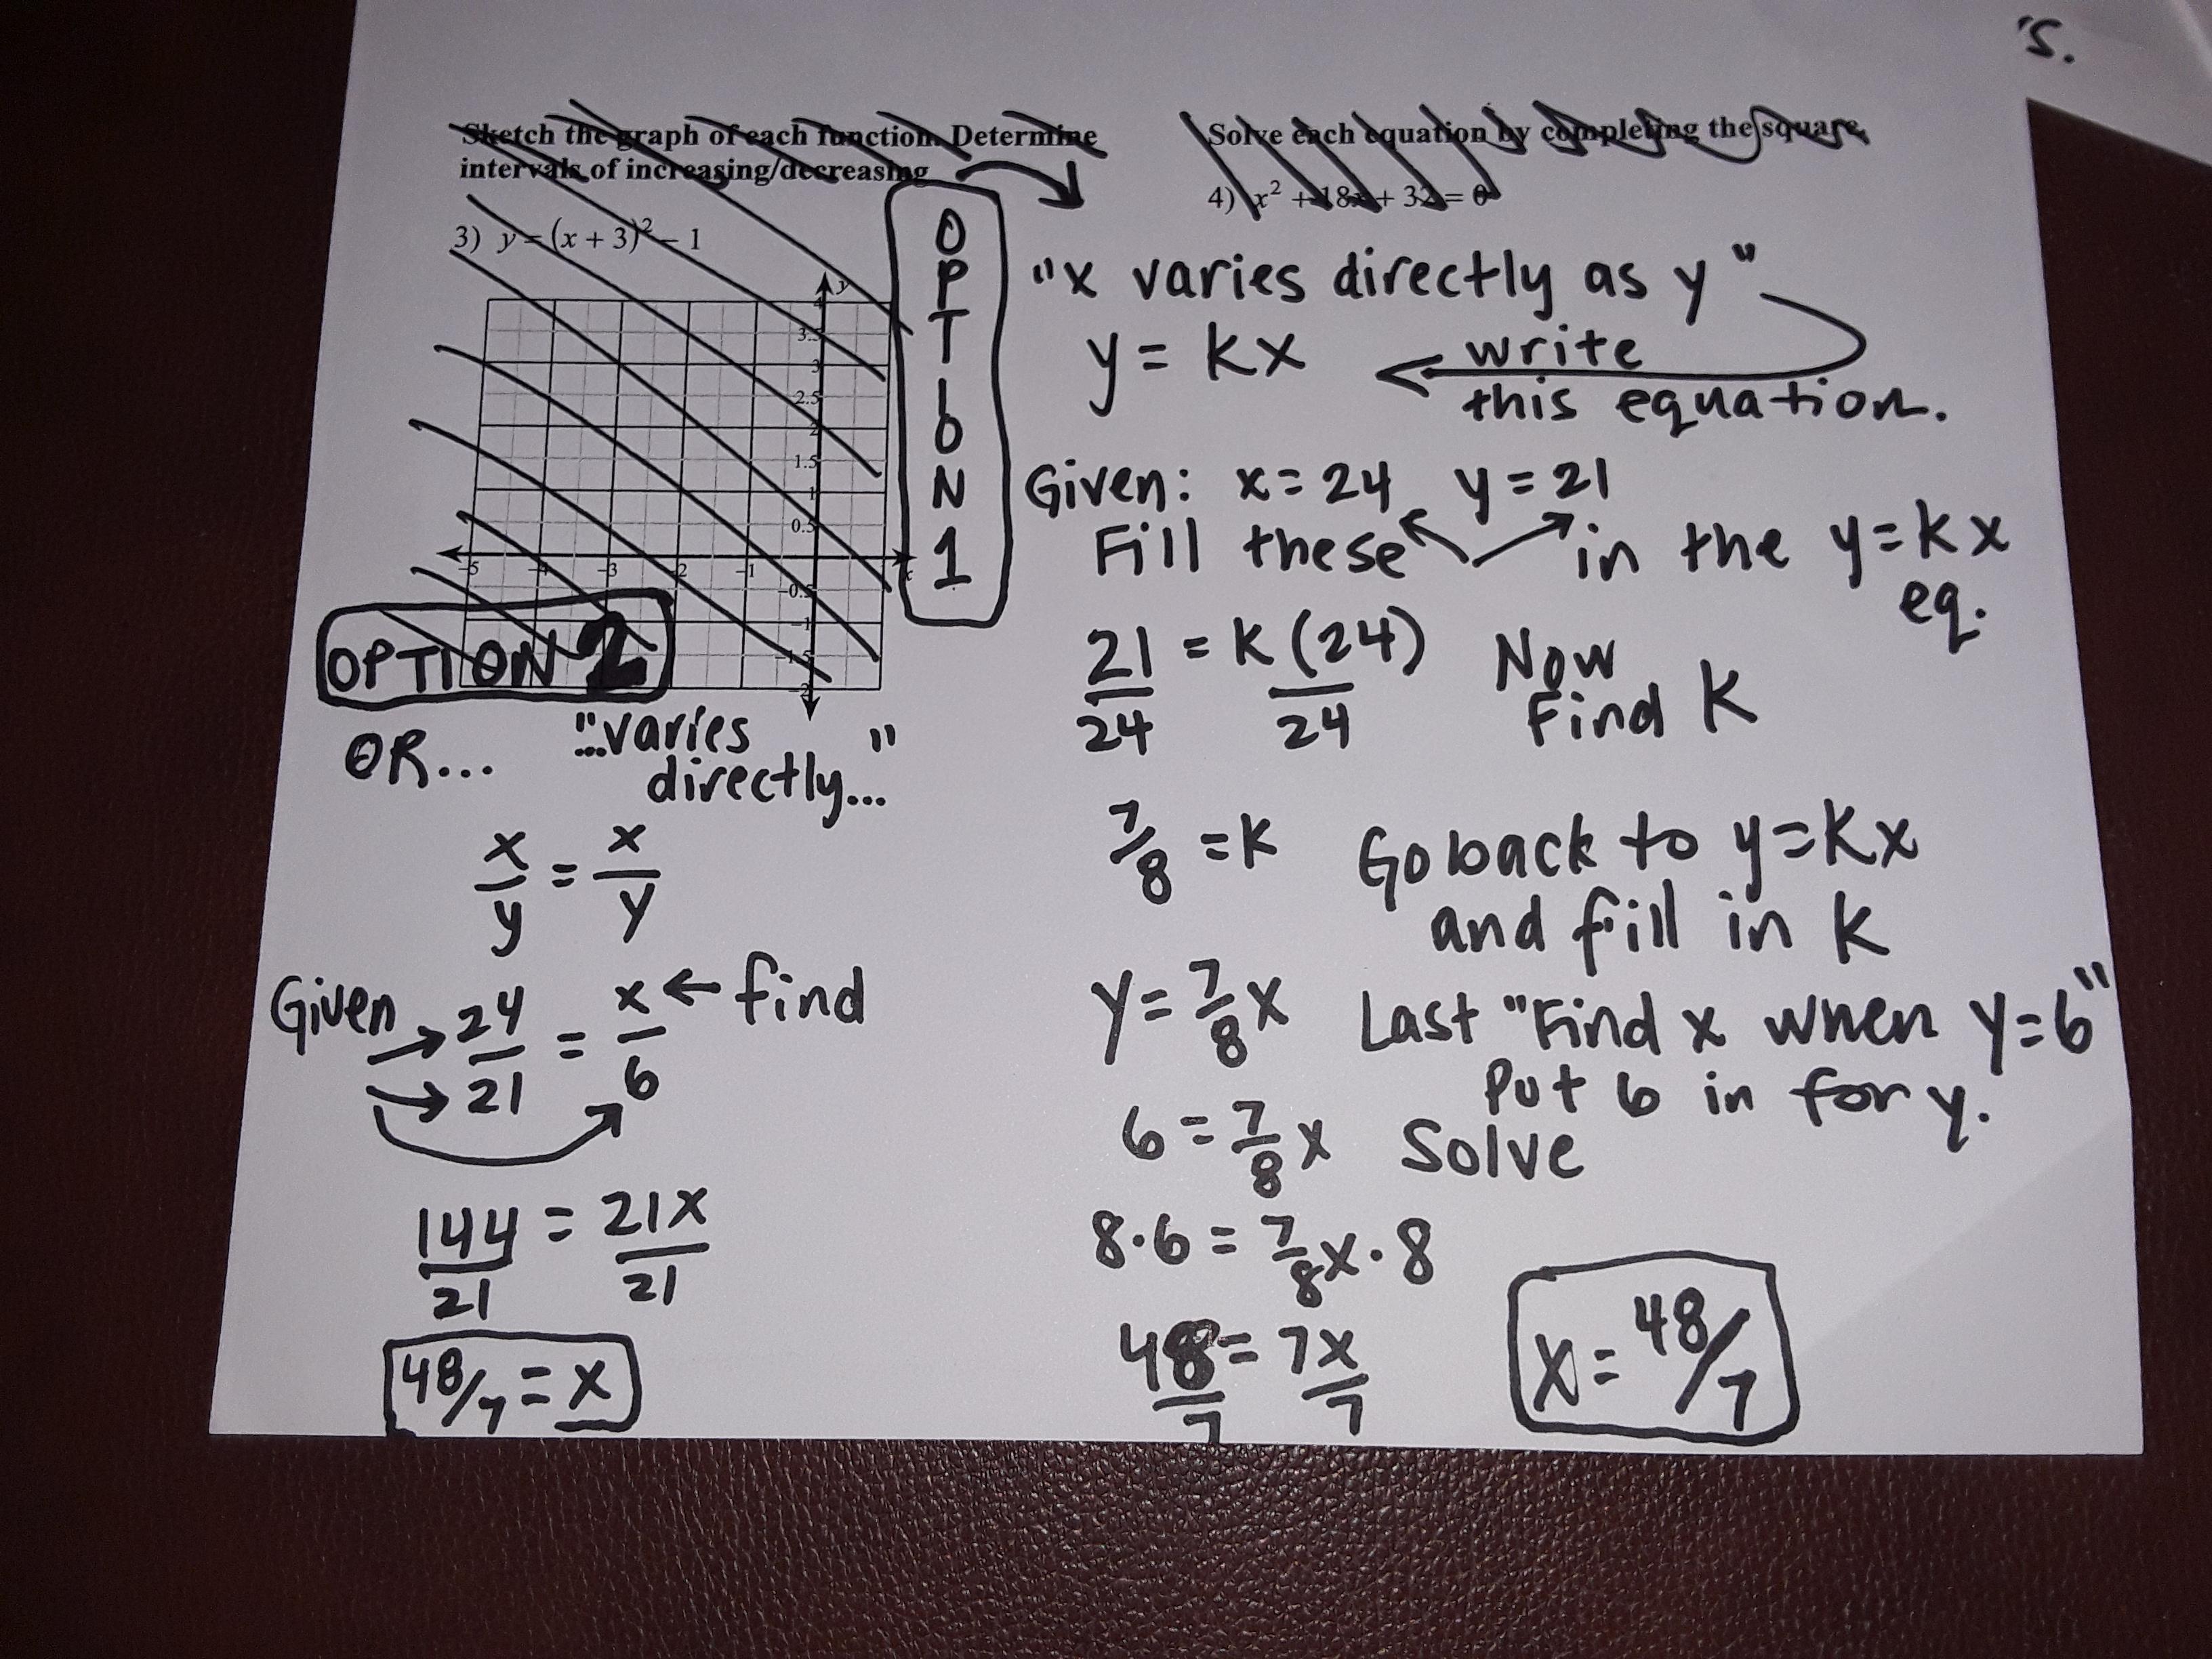 's.
Sketch the graph of each function. Determine
intervals of increasing/decreasing
3) y = (x + 3)² − 1
y
4
3.5
3
2.5
2
1.5
1
0.5
−5 −4 −3 −2 −1 x
−0.5
−1
−1.5
−2
OPTION 1
Solve each equation by completing the square.
4) x² + 18x + 32 = 0
"x varies directly as y"
y = kx write
this equation.
Given: x = 24 y = 21
Fill these in the y = kx
eq.
21/24 = k(24)/24 Now
Find k
7/8 = k Go back to y = kx
and fill in k
y = 7/8 x Last "Find x when y = 6"
Put 6 in for y.
6 = 7/8 x Solve
8·6 = 7/8 x·8
48/7 = 7x/7
x = 48/7
OPTION 2
OR... "...varies
directly..."
x/y = x/y
Given 24/21 = x/6 ← find
144/21 = 21x/21
48/7 = x